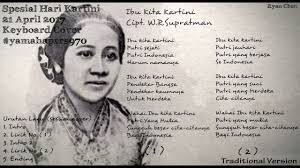 Spesial Hari Kartini
21 April 2017
Keyboard Cover
#yamahapsrs970
Ibu Kita Kartini
Cipt. W.R.Supratman
Ryan Chen
Ibu kita Kartini
Putri sejati
Putri Indonesia
Harum namanya
Ibu kita Kartini
Pendekar bangsa
Pendekar kaumnya
Untuk Merdeka
Wahai ibu kita Kartini
Putri Yang Mulia
Sungguh besar cita-citanya
Bagi Indonesia
Ibu kita Kartini
Putri jauhari
Putri yang berjasa
Se Indonesia
Ibu kita Kartini
Putri yang suci
Putri yang merdeka
Cita-citanya
Wahai ibu kita Kartini
Putri yang mulia
Sungguh besar cita-citanya
Bagi Indonesia
1. Intro
2. Lirik No (1)
3. Intro
4. Lirik No (2)
5. Ending
(1)
(2)
Traditional Version